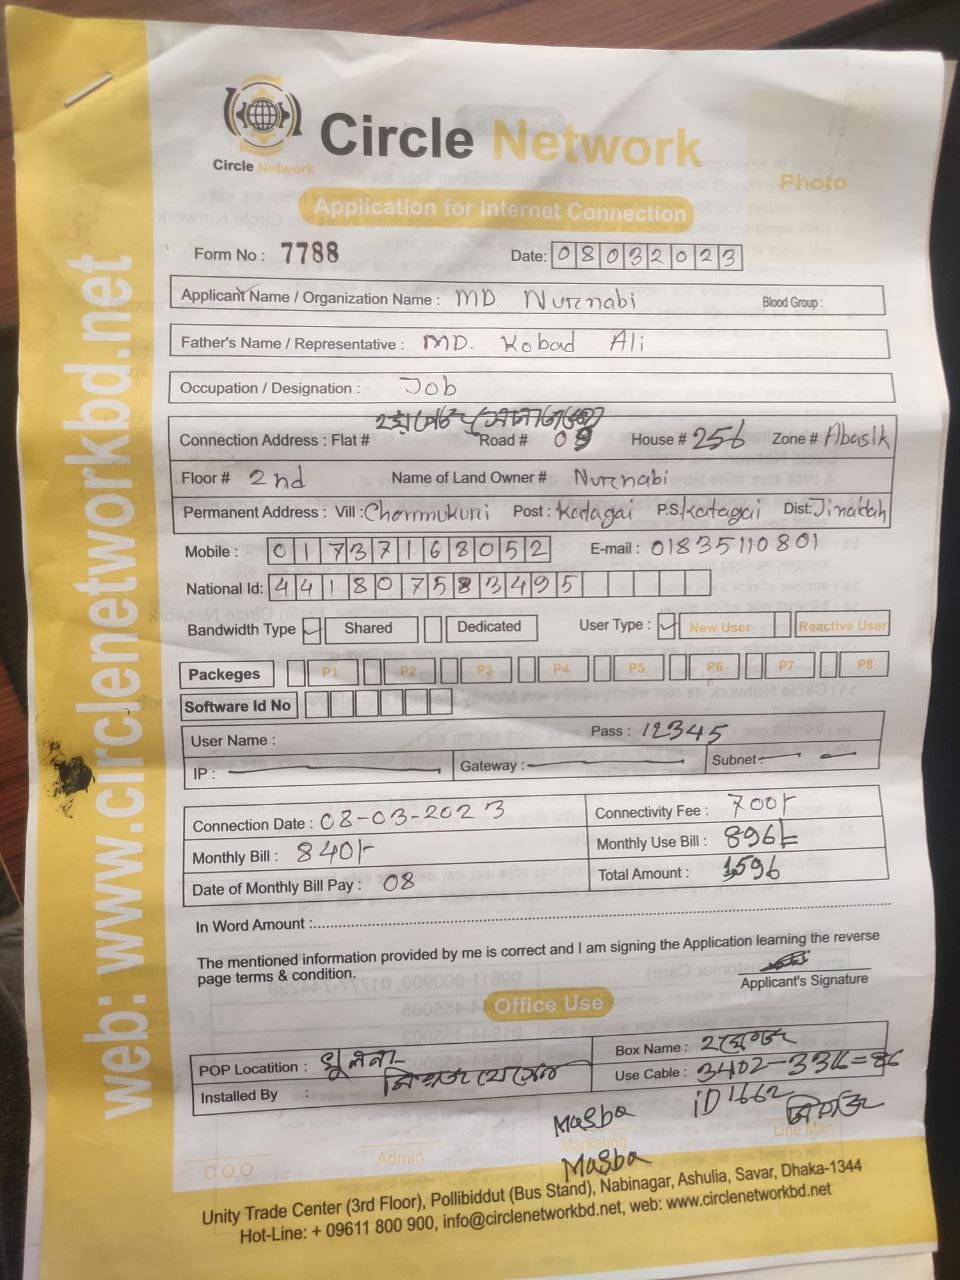 Circle Network
Circle Network
Photo
Application for Internet Connection
Form No : 7788
Date: 08032023
Applicant Name / Organization Name : MD. Nurnabi Blood Group :
Father's Name / Representative : MD. Kobad Ali
Occupation / Designation : Job
Connection Address : Flat # Road # 08 House # 256 Zone #
Floor # 2nd Name of Land Owner # Nurnabi
Permanent Address : Vill : Post : P.S. Dist:
Mobile : 01737163052 E-mail : 01835110801
National Id: 441807583495
Bandwidth Type Shared Dedicated User Type : New User Reactive User
Packeges P1 P2 P3 P4 P5 P6 P7 P8
Software Id No
User Name : Pass : 12345
IP : Gateway : Subnet
Connection Date : 08-03-2023 Connectivity Fee : 700/-
Monthly Bill : 840/- Monthly Use Bill : 896/-
Date of Monthly Bill Pay : 08 Total Amount : 1596
In Word Amount :
The mentioned information provided by me is correct and I am signing the Application learning the reverse
page terms & condition.
Applicant's Signature
Office Use
POP Locatition : খুলনা Box Name :
Installed By : Use Cable :
Masba iD 1662
Marketing Line Man
C.O.O. Admin
Masba
Unity Trade Center (3rd Floor), Pollibiddut (Bus Stand), Nabinagar, Ashulia, Savar, Dhaka-1344
Hot-Line: + 09611 800 900, info@circlenetworkbd.net, web: www.circlenetworkbd.net
web: www.circlenetworkbd.net